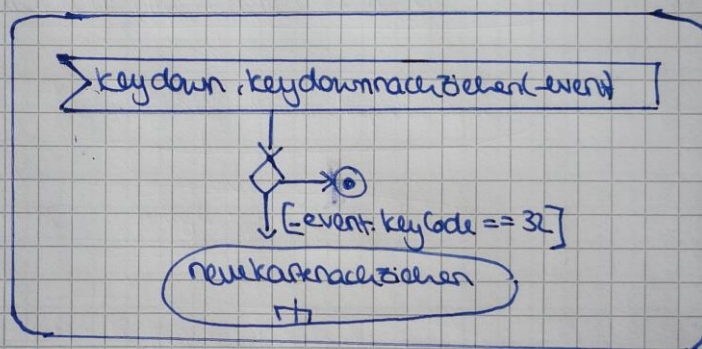 keydown, keydownnachziehen(_event)
[_event.keyCode == 32]
neueKartenachziehen